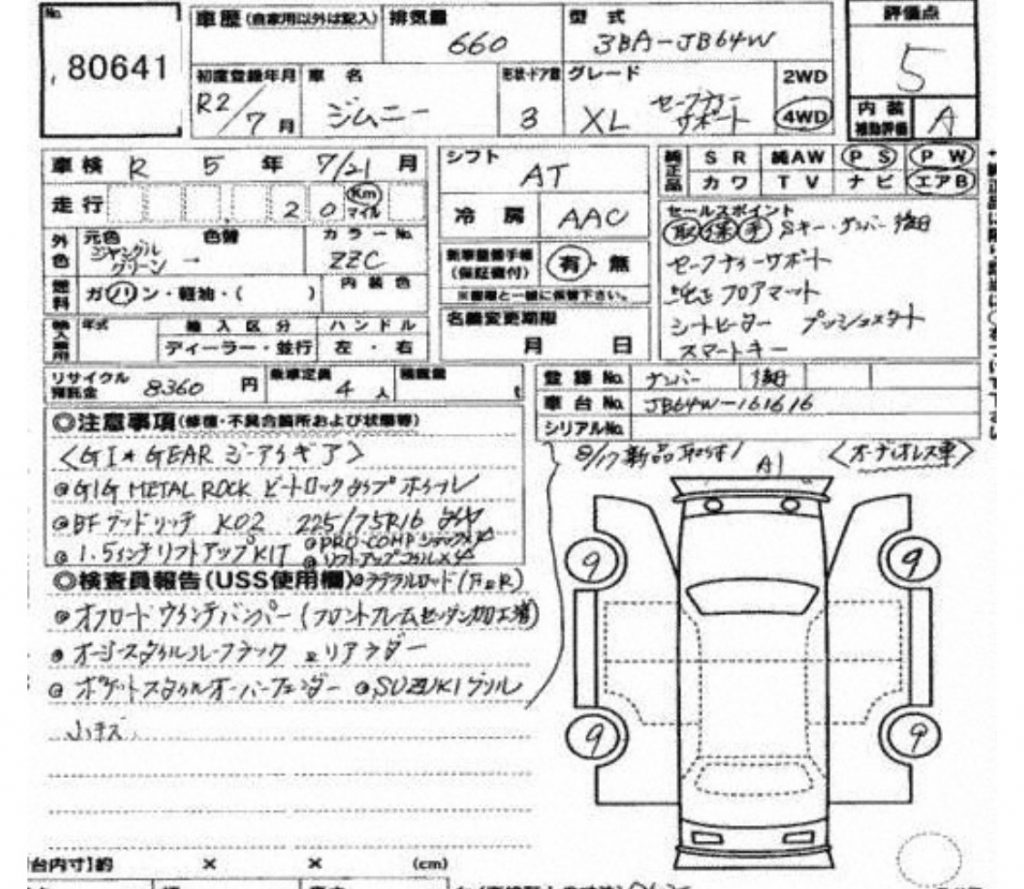 No.
80641
車歴(自家用以外は記入)
排気量
660
型 式
3BA-JB64W
評価点
5
初度登録年月
R2/7月
車 名
ジムニー
形状・ドア数
3
グレード
XL セーフティーサポート
2WD
4WD
内装補助評価
A
車検 R 5 年 7/21 月
シフト
AT
純正品
SR 純AW PS PW
カワ TV ナビ エアB
走行 20 Km マイル
冷房 AAC
外色
元色 色替 カラーNo.
ジャングルグリーン → ZZC
新車整備手帳(保証書付) 有・無
※書類と一緒に係留下さい。
燃料
ガソリン・軽油・( )
内装色
名義変更期限
月 日
セールスポイント
取 保 手 Sキー・ナンバー後日
セーフティーサポート
純正フロアマット
シートヒーター プッシュスタート
スマートキー
輸入車用
年式 輸入区分 ハンドル
ディーラー・並行 左・右
リサイクル預託金 8360 円
乗車定員 4 人
積載量
登録No. ナンバー 後日
車台No. JB64W-161616
シリアルNo.
◎注意事項(修復・不具合箇所および状態等)
<GI★GEAR ジーアイギア>
8/17新品取付
A1
<オーディオレス車>
◎GIG METAL ROCK ビートロックタイプホイール
◎BFグッドリッチ K02 225/75R16 タイヤ
◎1.5インチリフトアップKIT ◎PRO-COMPショックX4
◎リフトアップコイルX4
◎検査員報告(USS使用欄) ◎ラテラルロッド(F&R)
◎オフロードウインチバンパー(フロントフレームセンダン加工済)
◎オージースタイルルーフラック ◎リアラダー
◎ポケットスタイルオーバーフェンダー ◎SUZUKIグリル
小キズ
9
9
9
9
台内寸】約 × × (cm)